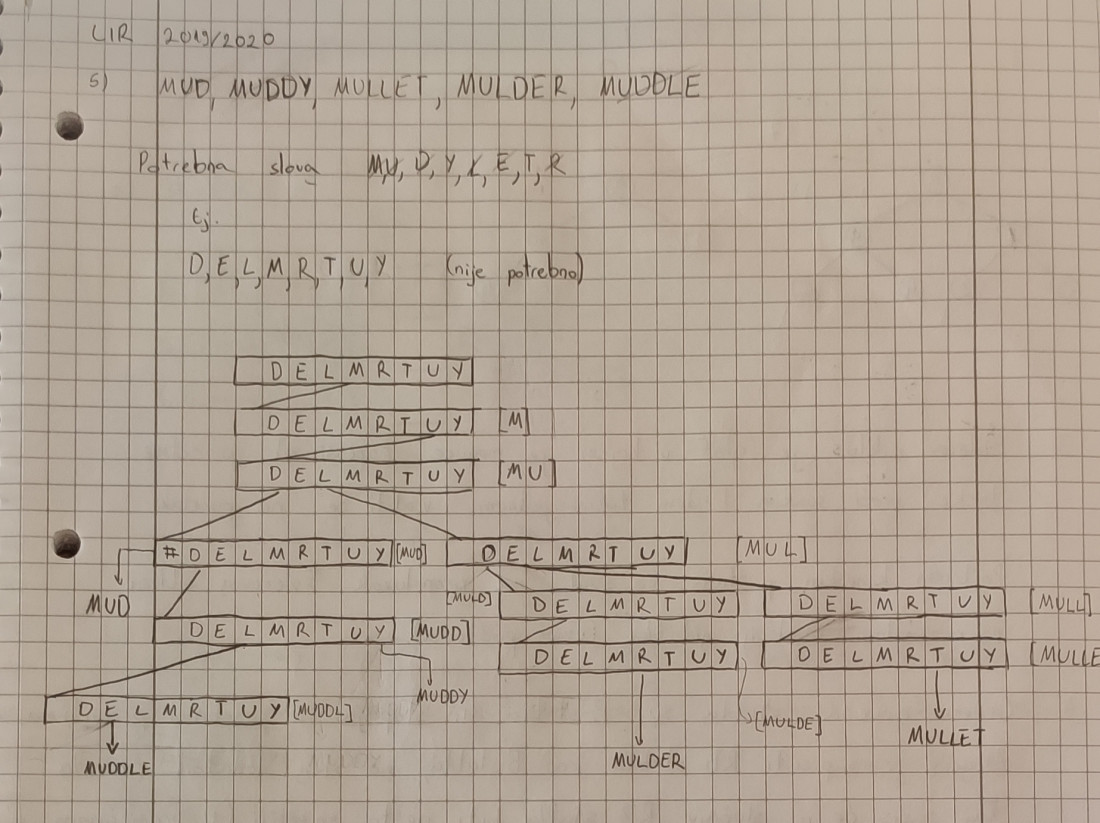 LIR 2019/2020
5) MUD, MUDDY, MULLET, MULDER, MUDDLE
Potrebna slova M,U, D, Y, L, E, T, R
tj.
D, E, L, M, R, T, U, Y (nije potrebno)
D E L M R T U Y
D E L M R T U Y [M]
D E L M R T U Y [MU]
# D E L M R T U Y [MUD] D E L M R T U Y [MUL]
MUD [MULD] D E L M R T U Y D E L M R T U Y [MULL]
D E L M R T U Y [MUDD] D E L M R T U Y D E L M R T U Y [MULLE
MUDDY
D E L M R T U Y [MUDDL] [MULDE]
MUDDLE MULDER MULLET